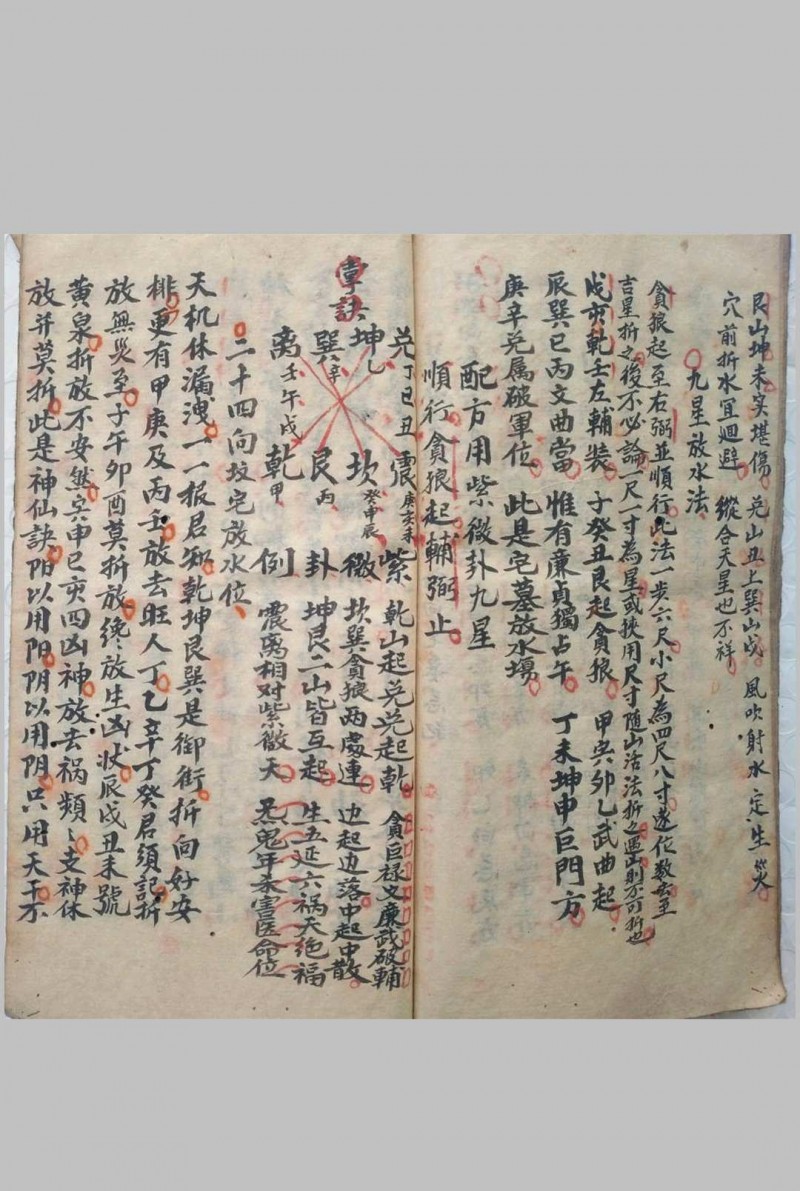 艮山坤未实堪傷　兑山丑上巽山戌　風吹射水定生災
穴前折水宜迴避　縱合天星也不祥
九星放水法
貪狼起至右弼並順行此法一步六尺小尺為四尺八寸遂位数去至
吉星折之後不必論一尺一寸為星或挾用尺寸隨山活法折之遇凶則不可折也
戌亥乾壬左輔裝　子癸丑艮起貪狼　甲寅卯乙武曲起
辰巽巳丙文曲當　惟有廉貞獨占午　丁未坤申巨門方
庚辛兑属破軍位　此是宅墓放水塲
配方用紫微卦九星
順行貪狼起輔弼止
章訣
兑丁巳丑　震庚亥未
坤乙　坎癸申辰
巽辛　艮丙
离壬午戌　乾甲
紫微卦例
乾山起兑兑起乾　貪巨禄文廉武破輔
坎巽貪狼两處連　边起边落中起中散
坤艮二山皆互起　生五延六祸天绝福
震离相对紫微天　鬼年杀害医命位
二十四向坟宅放水位
天机休漏洩一一报君知乾坤艮巽是御街折向好安
排更有甲庚及丙壬放去旺人丁乙辛丁癸君須記折
放無災至子午卯酉莫折放纔放生凶状辰戌丑未號
黄泉折放不安然寅申巳亥四凶神放去祸頻〻支神休
放并莫折此是神仙訣阳以用阳阴以用阴只用天干不